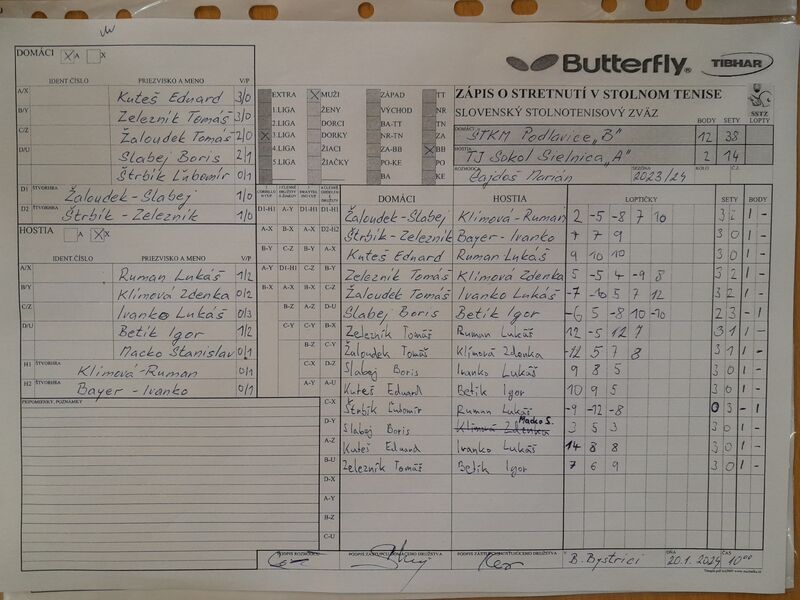 DOMÁCI A X
IDENT. ČÍSLO PRIEZVISKO A MENO V/P
A/X Kuteš Eduard 3/0
B/Y Železník Tomáš 3/0
C/Z Žaloudek Tomáš 2/0
D/U Slabej Boris 2/1
Štrbík Ľubomír 0/1
D1 ŠTVORHRA Žaloudek-Slabej 1/0
D2 ŠTVORHRA Štrbík-Železník 1/0
HOSTIA A X
IDENT. ČÍSLO PRIEZVISKO A MENO V/P
A/X Ruman Lukáš 1/2
B/Y Klimová Zdenka 0/2
C/Z Ivanko Lukáš 0/3
D/U Betík Igor 1/2
Macko Stanislav 0/1
H1 ŠTVORHRA Klimová-Ruman 0/1
H2 ŠTVORHRA Bayer-Ivanko 0/1
PRIPOMIENKY, POZNÁMKY
EXTRA MUŽI ZÁPAD TT
1.LIGA ŽENY VÝCHOD NR
2.LIGA DORCI BA-TT TN
3.LIGA DORKY NR-TN ZA
4.LIGA ŽIACI ZA-BB BB
5.LIGA ŽIAČKY PO-KE PO
BA KE
Butterfly TIBHAR
ZÁPIS O STRETNUTÍ V STOLNOM TENISE
SLOVENSKÝ STOLNOTENISOVÝ ZVÄZ
SSTZ
BODY SETY LOPTY
DOMÁCI STKM Podlavice „B" 12 38
HOSTIA TJ Sokol Sielnica „A" 2 14
ROZHODCA Gajdoš Marián SEZÓNA 2023/24 KOLO Č.Z.
DOMÁCI HOSTIA LOPTIČKY SETY BODY
Žaloudek-Slabej Klimová-Ruman 2 -5 -8 7 10 3 2 1 -
Štrbík-Železník Bayer-Ivanko 7 7 9 3 0 1 -
Kuteš Eduard Ruman Lukáš 9 10 10 3 0 1 -
Železník Tomáš Klimová Zdenka 5 -5 4 -9 8 3 2 1 -
Žaloudek Tomáš Ivanko Lukáš -7 -10 5 7 12 3 2 1 -
Slabej Boris Betík Igor -6 5 -8 10 -10 2 3 - 1
Železník Tomáš Ruman Lukáš 12 -5 12 7 3 1 1 -
Žaloudek Tomáš Klimová Zdenka -12 5 7 8 3 1 1 -
Slabej Boris Ivanko Lukáš 9 8 5 3 0 1 -
Kuteš Eduard Betík Igor 10 9 5 3 0 1 -
Štrbík Ľubomír Ruman Lukáš -9 -12 -8 0 3 - 1
Slabej Boris Klimová Zdenka Macko S. 3 5 3 3 0 1 -
Kuteš Eduard Ivanko Lukáš 14 8 8 3 0 1 -
Železník Tomáš Betík Igor 7 6 9 3 0 1 -
PODPIS ROZHODCU PODPIS ZÁSTUPCU DOMÁCEHO DRUŽSTVA PODPIS ZÁSTUPCU HOSŤUJÚCEHO DRUŽSTVA B. Bystrici DŇA 20.1.2024 ČAS 10⁰⁰